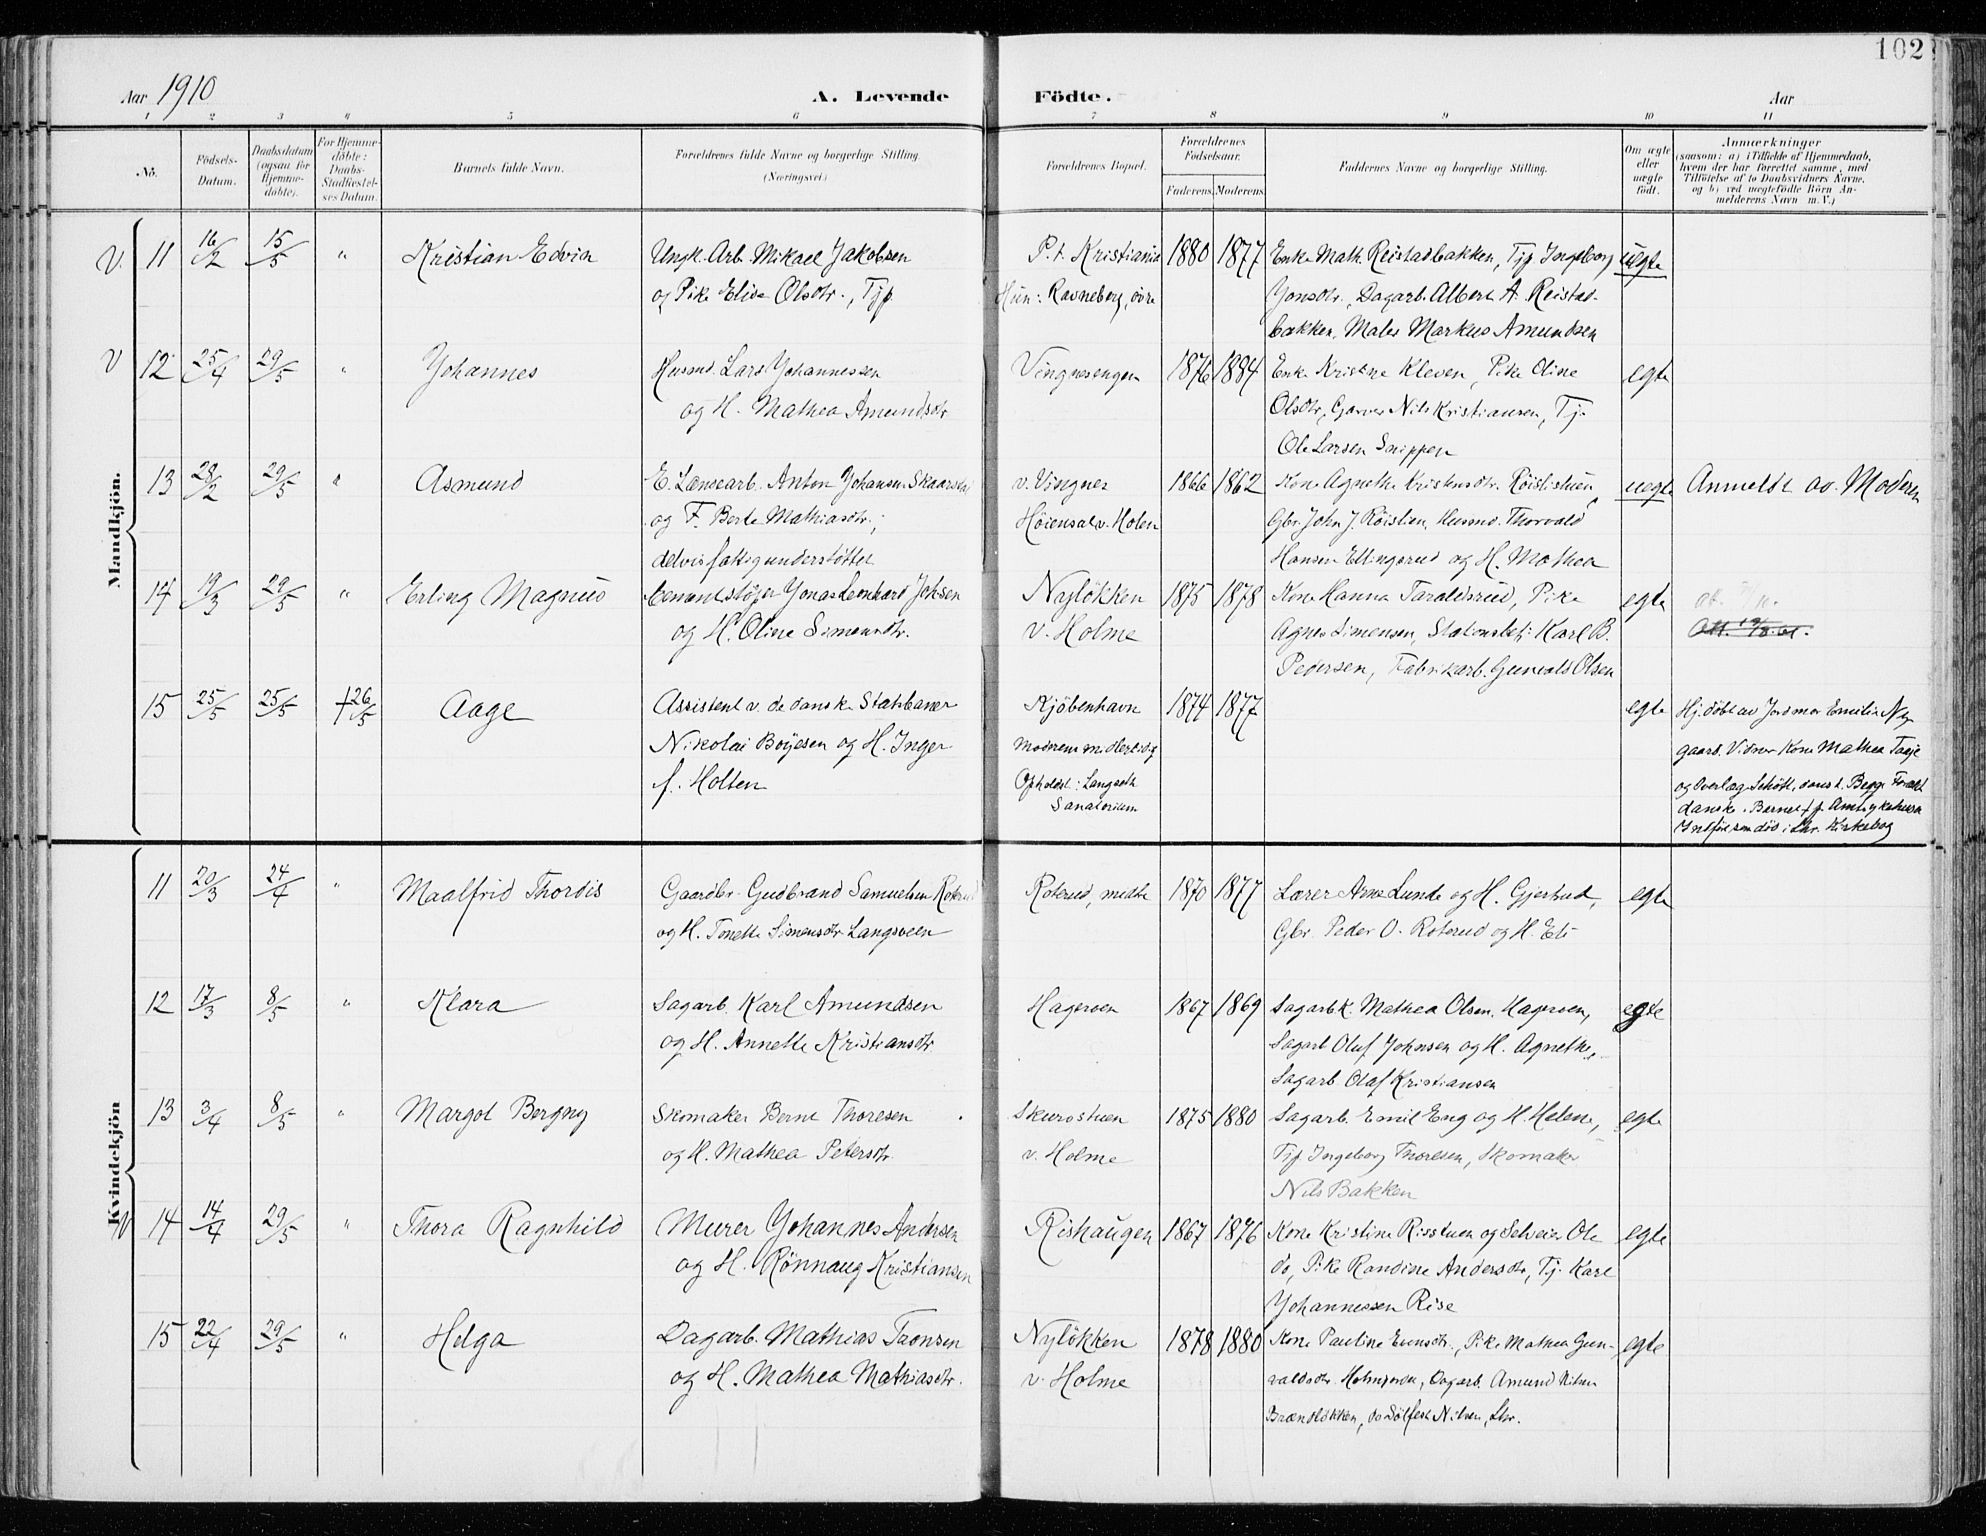 102
Aar 1910
A. Levende Födte.
Aar
1 2 3 4 5 6 7 8 9 10 11
No.
Födsels-
Datum.
Daabsdatum
(ogsaa for
Hjemme-
döbte).
For Hjemme-
döbte:
Daabs-
Stadfæstel-
ses Datum.
Barnets fulde Navn.
Forældrenes fulde Navne og borgerlige Stilling.
(Næringsvei)
Forældrenes Bopæl.
Forældrenes
Födselsaar.
Faderens. Moderens.
Faddernes Navne og borgerlige Stilling.
Om ægte
eller
uægte
födt.
Anmærkninger
(saasom: a) i Tilfælde af Hjemmedaab,
hvem der har forrettet samme, med
Tilföielse af to Daabsvidners Navne,
og b) ved uægtefödte Börn An-
melderens Navn m. V.)
Mandkjön.
V. 11 16/2 15/5 " Kristian Edvin
Ungk. Arb. Mikael Jakobsen
og Pike Elise Olsdtr., Tjp.
P. t. Kristiania
Hun: Ravneberg, övre
1880 1877
Enke Math. Reistadbakken, Tjp Ingeborg
Jonsdtr., Dagarb. Albert A. Reistad-
bakken, Maler Markus Amundsen
uegte
V 12 25/4 29/5 " Johannes
Husmd. Lars Johannessen
og H. Mathea Amundsdtr
Vingnesengen
1876 1884
Enke Kristine Kleven, Pike Oline
Olsdtr, Garver Nils Kristiansen, Tj.
Ole Larsen Snippen
egte
13 28/2 29/5 " Asmund
E. Lænsearb. Anton Johansen Skaarset
og F. Berte Mathiasdtr.;
delvis fattigunderstöttet
v. Vingnes
Höiensal v. Holen
1866 1862
Kone Agnethe Kristensdtr. Röislistuen
Gbr. John J. Röislien, Husmd. Thorvald
Hansen Ellingsrud og H. Mathea
uegte
Anmeldt av Moderen
14 19/3 29/5 " Erling Magnus
Cementstöper Jonas Leonhard Johsen
og H. Oline Simensdtr.
Nylökken
v. Holme
1875 1878
Kone Hanna Taraldsrud, Pike
Agnes Simensen, Stationsbetj. Karl B.
Pedersen, Fabrikarb. Gunvald Olsen
egte
15 25/5 25/5 †26/5 Aage
Assistent v. de danske Statsbaner
Nikolai Boÿesen og H. Inger
f. Holten
Kjöbenhavn
Moderens midlertidig
Opholdst: Langseth
Sanatorium
1874 1877
egte
Hj. döbt av Jordmor Emilie Ny-
gaard. Vidner Kone Mathea Taaje
og Overlæge Schött, dansk. Begge Foræld.
danske. Barnet † p. Amtsykehuset
Indfört som död i Lhr. Kirkebog
Kvindekjön
11 20/3 24/4 " Maalfrid Thordis
Gaardbr. Gudbrand Samuelsen Roterud
og H. Tonette Simensdtr Langsveen
Roterud, midtre
1870 1877
Lærer Arne Lunde og H. Gjertrud,
Gbr. Peder O. Roterud og H. Eli
egte
12 17/3 8/5 " Klara
Sagarb. Karl Amundsen
og H. Annette Kristiansdtr.
Hageroen
1867 1869
Sagarb.k. Mathea Olsen Hageroen,
Sagarb Oluf Johnsen og H. Agnethe,
Sagarb. Olaf Kristiansen
egte
13 3/4 8/5 " Margot Bergny
Skomaker Bernt Thoresen
og H. Mathea Petersdtr.
Skurustuen
v. Holme
1875 1880
Sagarb. Emil Eng og H. Helene,
Tjp Ingeborg Thoresen, Skomaker
Nils Bakken
egte
V 14 14/4 29/5 " Thora Ragnhild
Murer Johannes Andersen
og H. Rönnaug Kristiansen
Rishaugen
1867 1876
Kone Kristine Risstuen og Selveier Ole
do, Pike Randine Andersdtr, Tj. Karl
Johannessen Rise
egte
15 22/4 29/5 " Helga
Dagarb. Mathias Tronsen
og H. Mathea Mathiasdtr.
Nylökken
v. Holme
1878 1880
Kone Pauline Evensdtr., Pike Mathea Gun-
valdsdtr. Holmjordet, Dagarb. Amund Nilsen
Brændlökken, do Sölfest Nilsen, Lhr.
egte